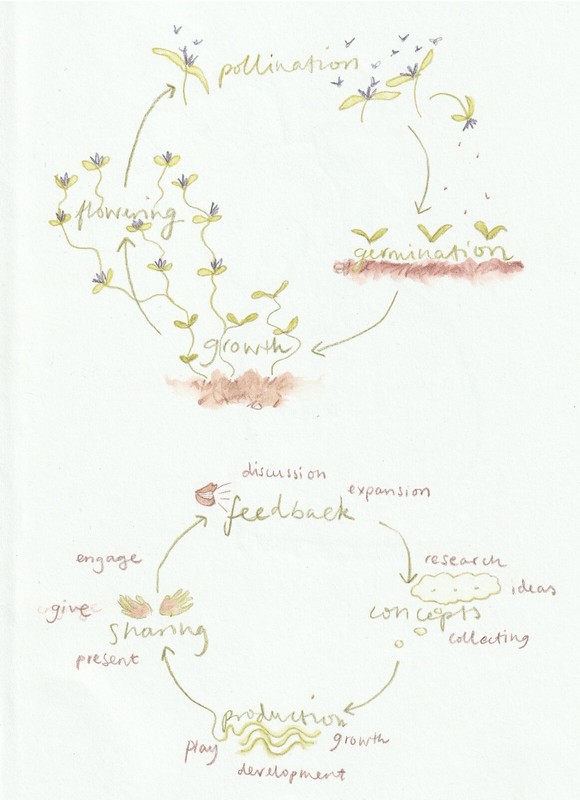 pollination
flowering
germination
growth
discussion
expansion
feedback
engage
research
ideas
give
concepts
sharing
collecting
present
production
play
growth
development